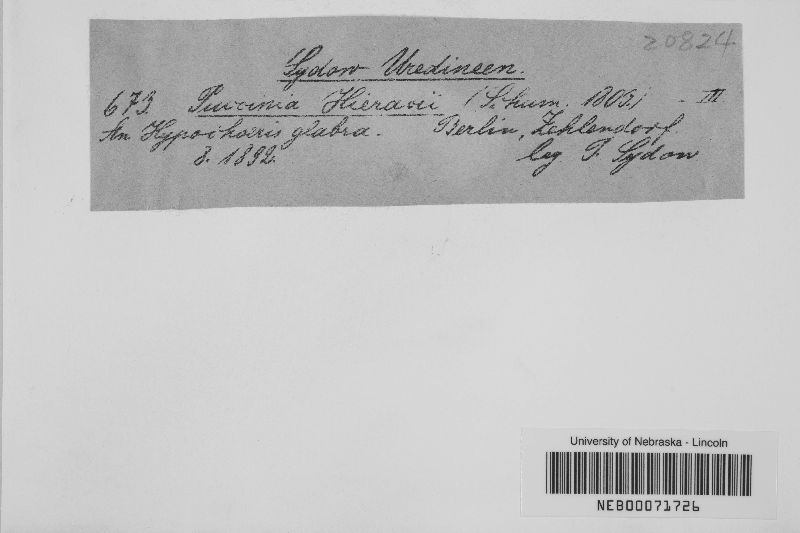 20824
Sydow Uredineen.
673. Puccinia Hieracii (Schum. 1803) - III
An Hypochoeris glabra. Berlin, Zehlendorf
8. 1892. leg. P. Sydow
University of Nebraska - Lincoln
NEB00071726